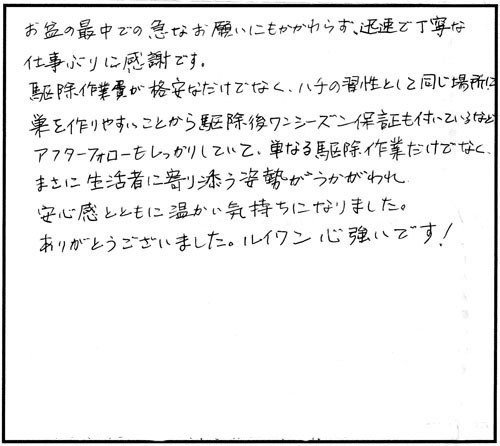 お盆の最中での急なお願いにもかかわらず、迅速で丁寧な
仕事ぶりに感謝です。
駆除作業費が格安なだけでなく、ハチの習性として同じ場所に
巣を作りやすいことから駆除後ワンシーズン保証も付いているなど
アフターフォローもしっかりしていて、単なる駆除作業だけでなく、
まさに生活者に寄り添う姿勢がうかがわれ
安心感とともに温かい気持ちになりました。
ありがとうございました。ルイワン心強いです!